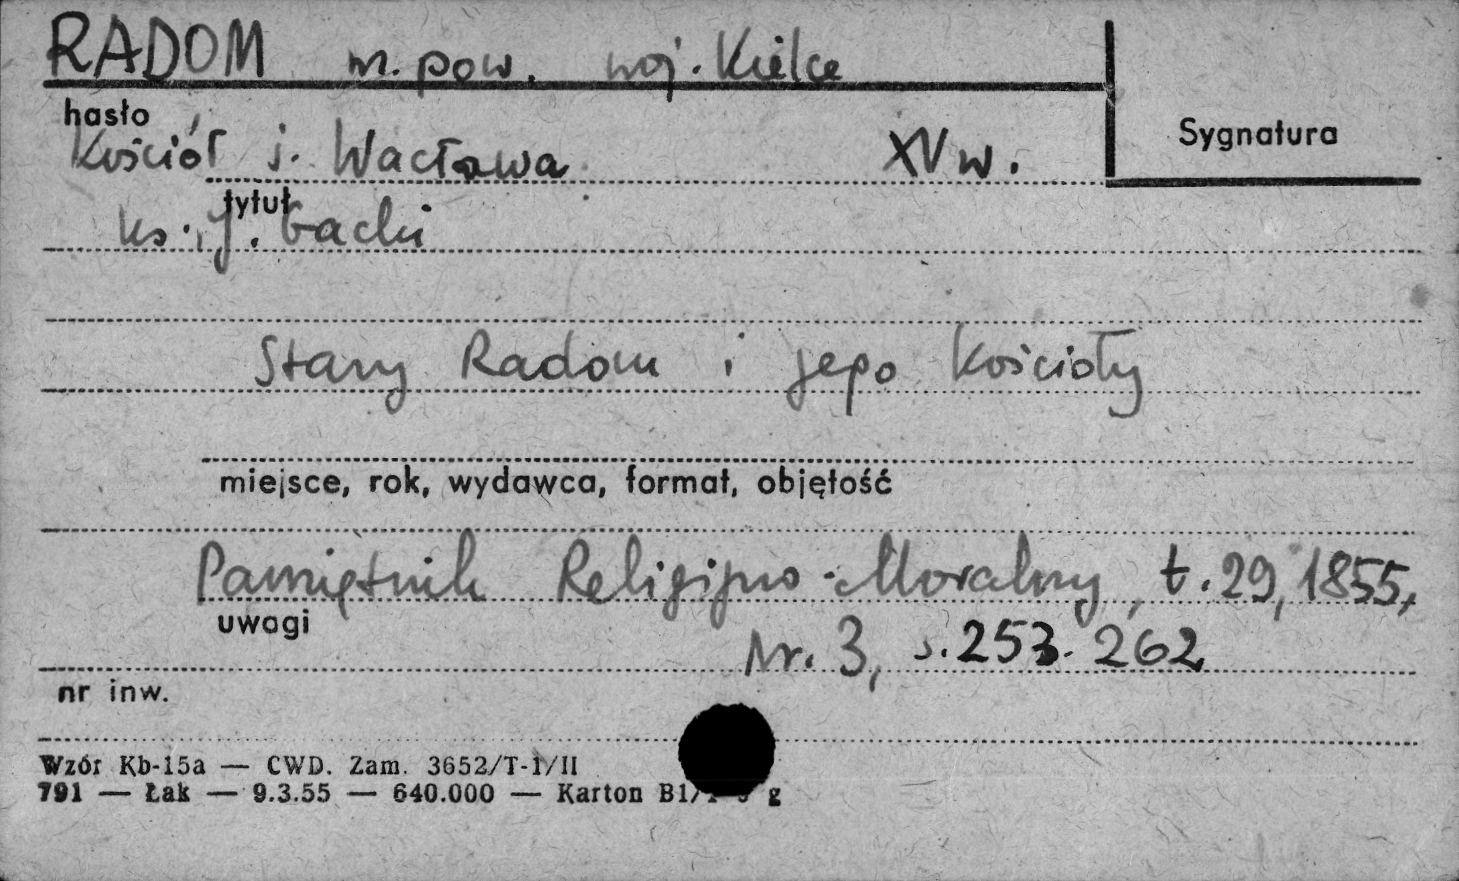 RADOM m. pow. woj. Kielce
hasło
Sygnatura
Kościół ś. Wacława XV w.
tytuł
ks. J. Gacki
Stary Radom i jego kościoły
miejsce, rok, wydawca, format, objętość
Pamiętnik Religijno-Moralny, t. 29, 1855,
uwagi
Nr. 3, s. 253-262
nr inw.
Wzór Kb-15a — CWD. Zam. 3652/T-1/II
791 — Łak — 9.3.55 — 640.000 — Karton B1/ g